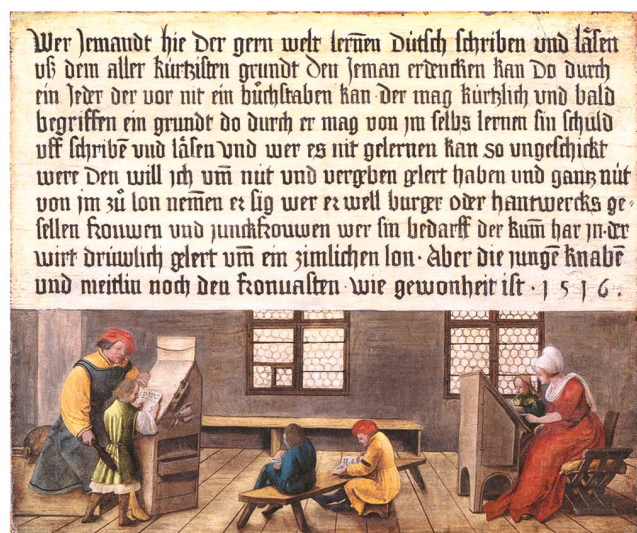 Wer jemandt hie der gern welt lernen̄ dütsch schriben und lǎsen
uß dem aller kürtzisten grundt den jeman erdencken kan do durch
ein jeder der vor nit ein bůchstaben kan · der mag kürtzlich und bald
begriffen ein grundt do durch er mag von jm selbs lernen sin schuld
uff schribē und lǎsen und wer es nit gelernen kan so ungeschickt
were den will jch um̄ nüt und vergeben gelert haben und gantz nüt
von jm zů lon nem̄en er sig wer er well burger oder hantwercks ge-
sellen frouwen und junckfrouwen wer sin bedarff der kum̄ har jn · der
wirt drüwlich gelert um̄ ein zimlichen lon · Aber die jungē knabē
und meitlin noch den fronuasten wie gewonheit ist · 1 5 1 6 ·